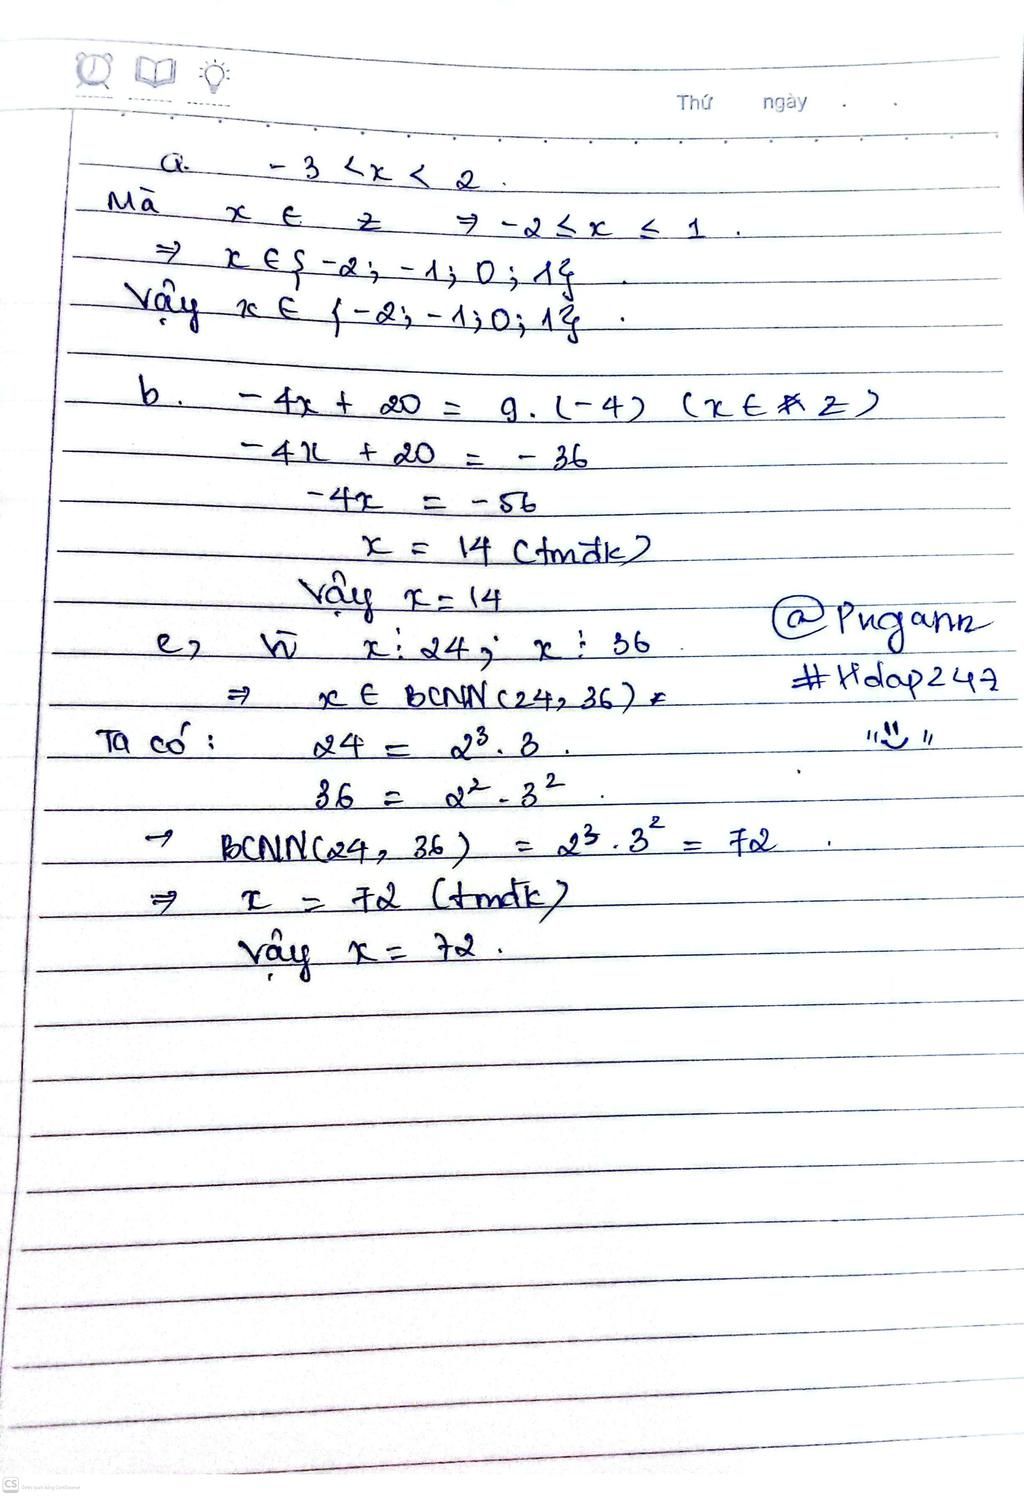 Thứ ngày . .
a. - 3 < x < 2 .
Mà x ∈ Z ⇒ -2 ≤ x ≤ 1 .
⇒ x ∈ { -2; -1; 0; 1}
Vậy x ∈ { -2; -1; 0; 1} .
b. - 4x + 20 = 9. (-4) (x ∈ Z)
-4x + 20 = - 36
-4x = -56
x = 14 (tmđk)
Vậy x = 14
c, Vì x ⋮ 24 ; x ⋮ 36
@Pugann
#Hdap247
⇒ x ∈ BCNN(24, 36)
Ta có : 24 = 2³ . 3 .
36 = 2² . 3² .
→ BCNN(24, 36) = 2³ . 3² = 72 .
⇒ x = 72 (tmđk)
Vậy x = 72 .
CS